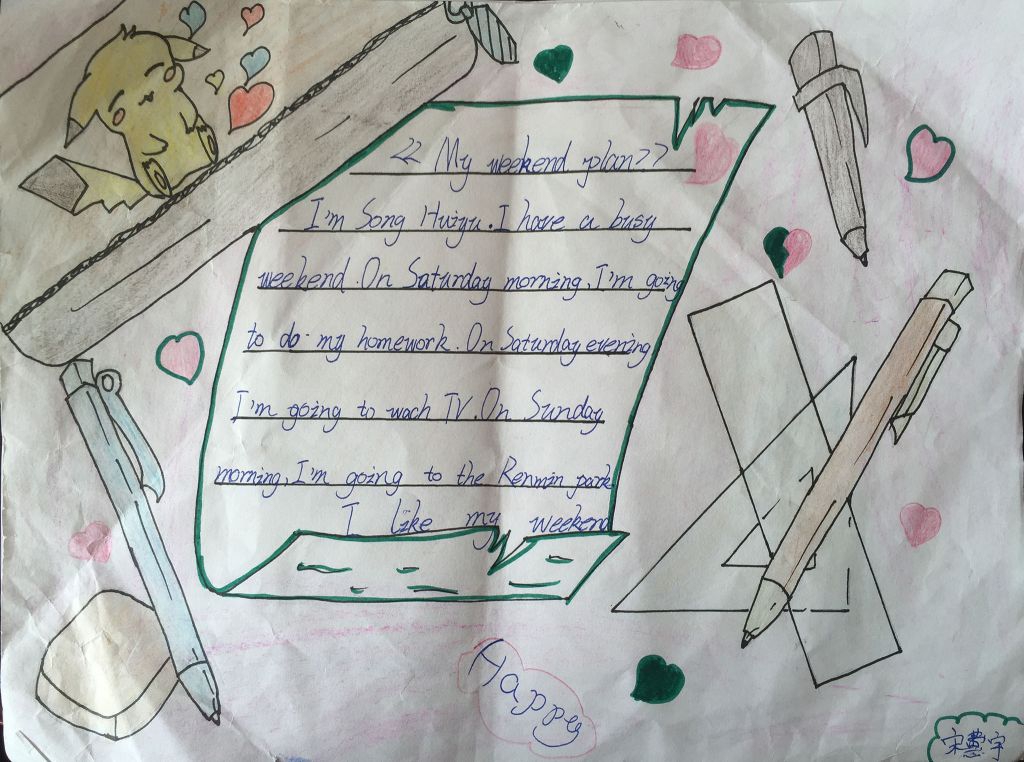 << My weekend plan>>
I'm Song Huiyu. I have a busy
weekend. On Saturday morning, I'm going
to do my homework. On Saturday evening
I'm going to wach TV. On Sunday
morning, I'm going to the Renmin park
I like my weekend
Happy
宋慧宇